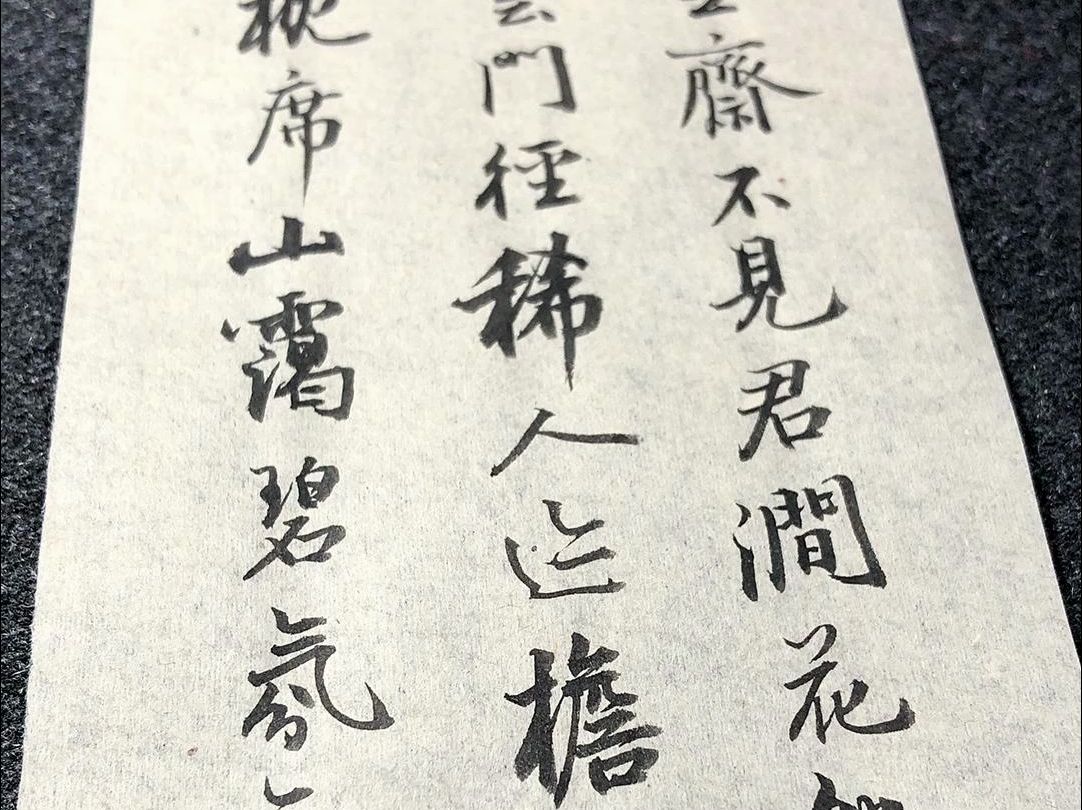 齋不見君澗花
門徑稀人迹檐
枕席山靄碧氛